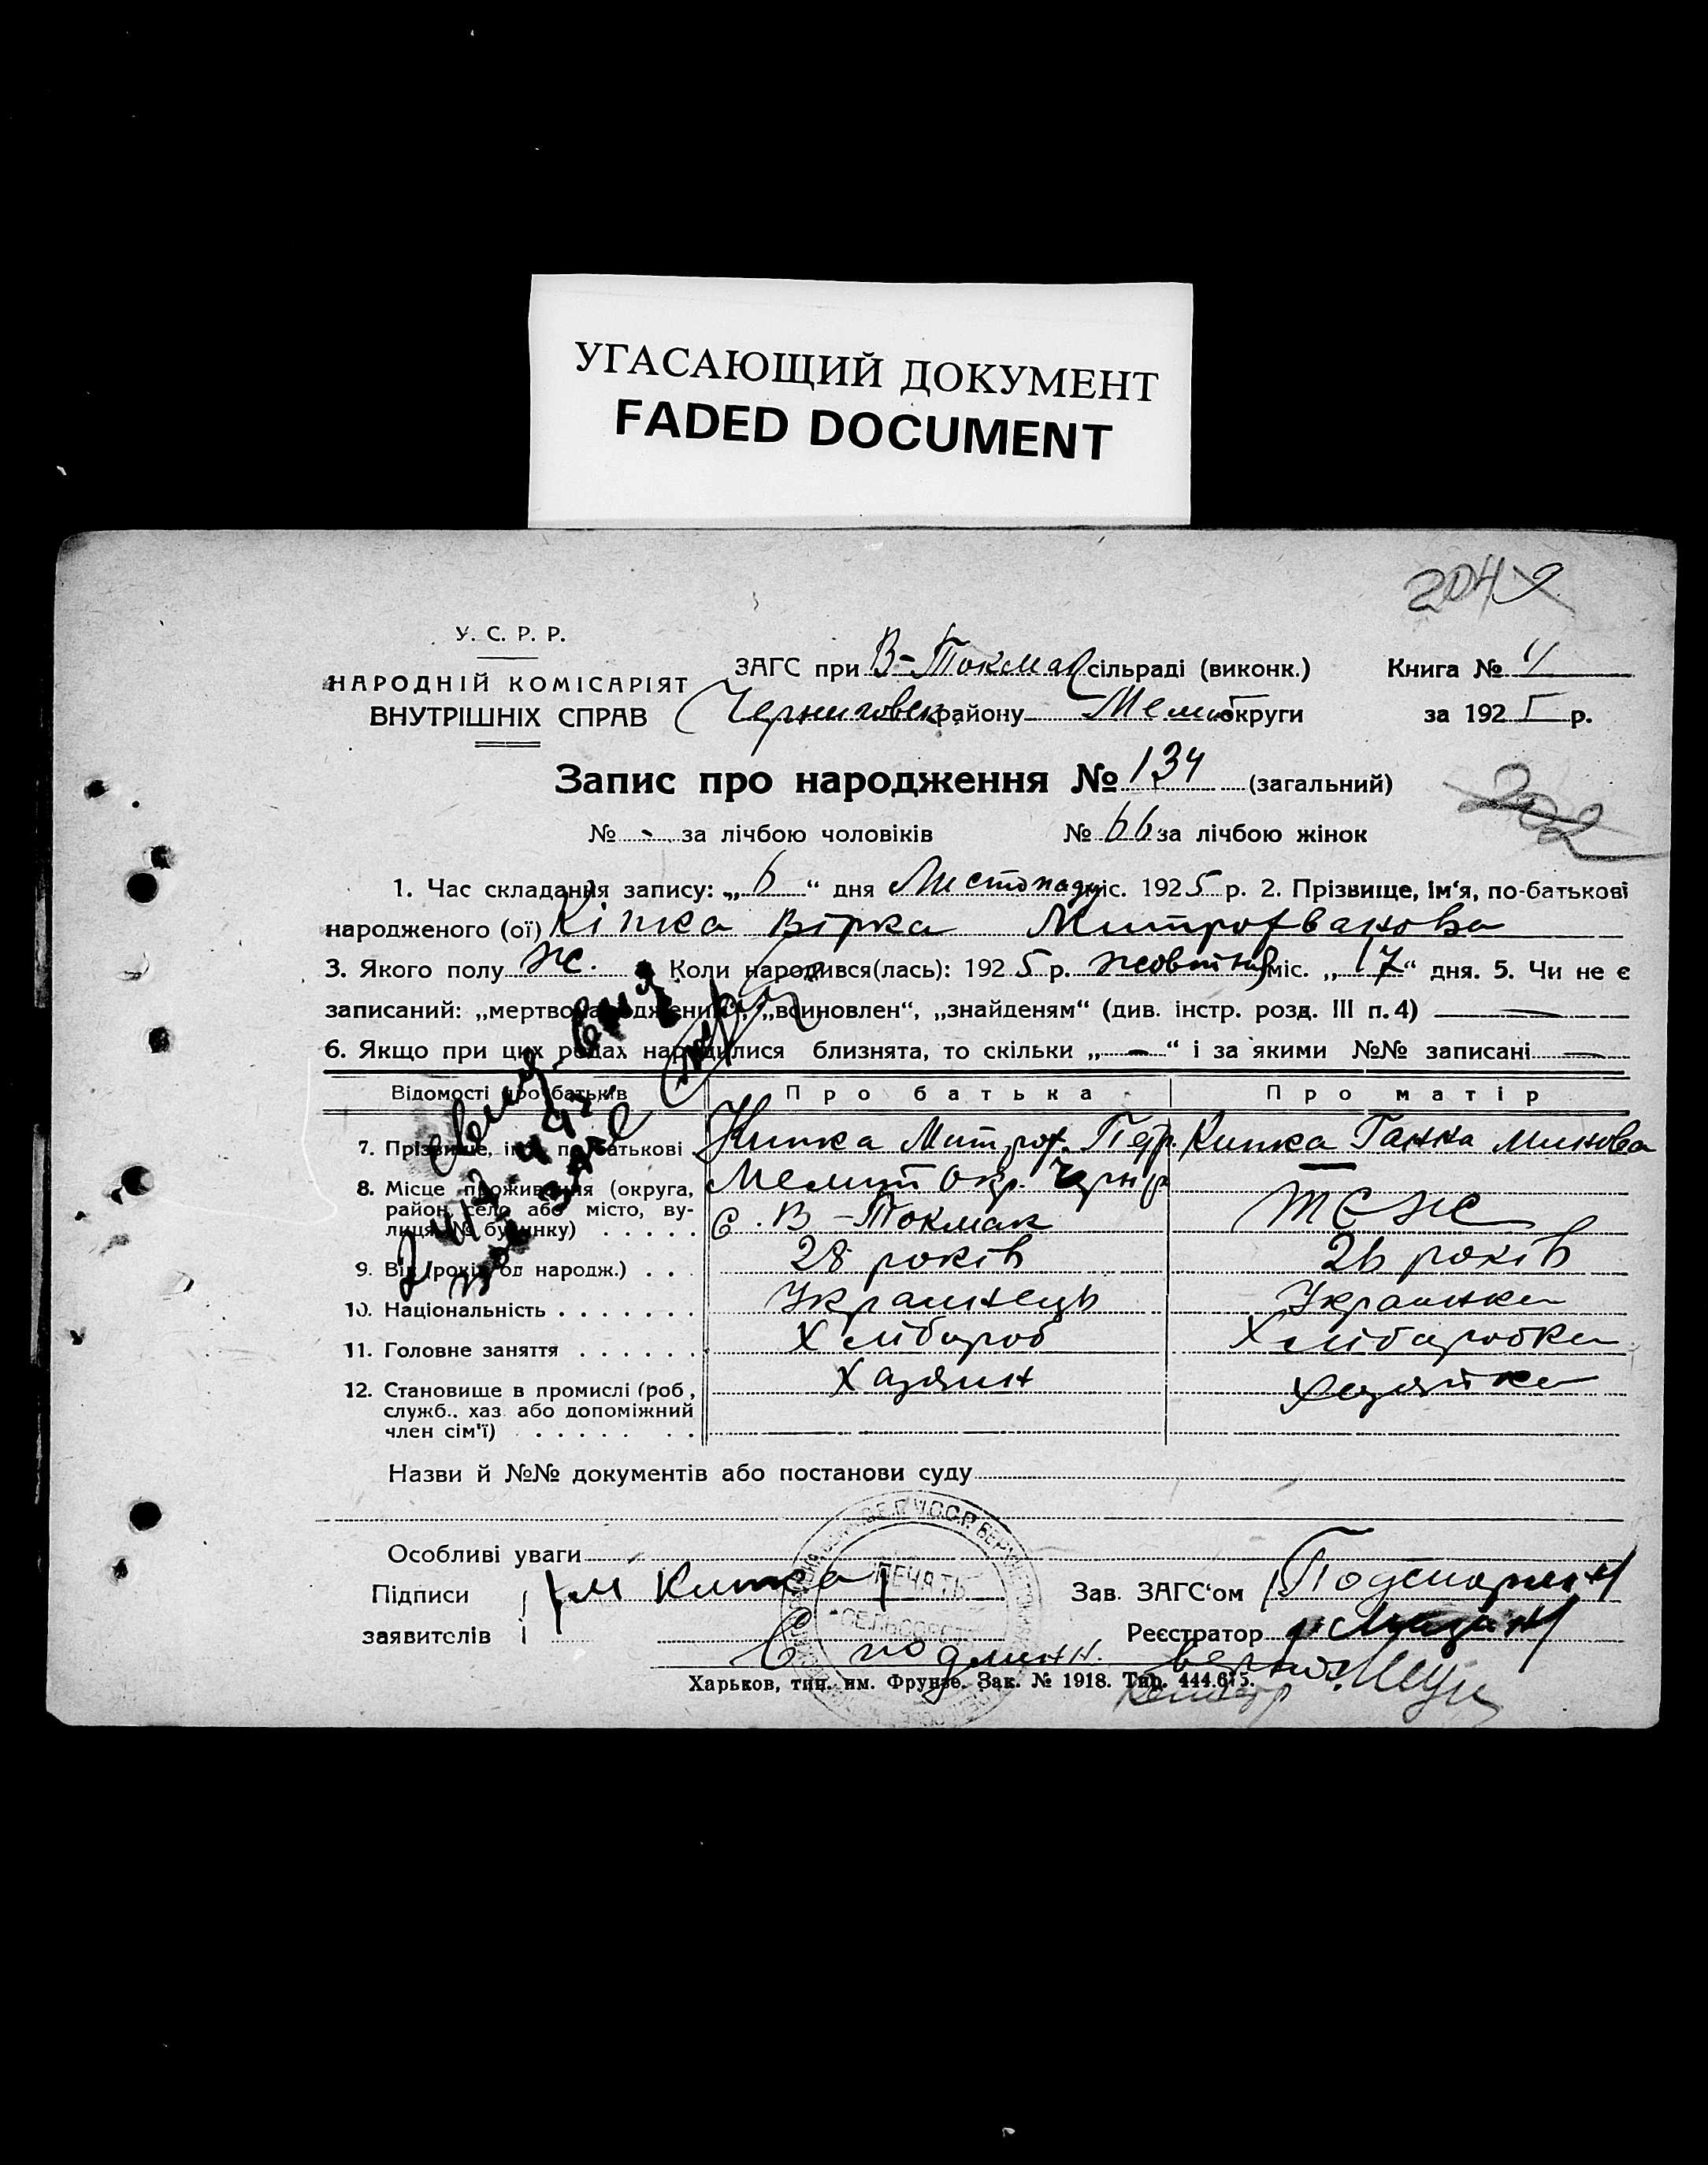 УГАСАЮЩИЙ ДОКУМЕНТ
FADED DOCUMENT
204
У. С. Р. Р.
НАРОДНІЙ КОМІСАРІЯТ
ВНУТРІШНІХ СПРАВ
ЗАГС при В-Токмак сільраді (виконк.) Книга №
Черниговск району Мелит округи за 1925 р.
Запис про народження № 134 (загальний)
202
№ - за лічбою чоловіків № 66 за лічбою жінок
1. Час складання запису: „6“ дня Листопаду міс. 1925 р. 2. Прізвище, ім‘я, по-батькові
народженого (ої) Кіпка Вірка Митрофванова
3. Якого полу Ж. Коли народився(лась): 1925 р. жовтня міс. „17“ дня. 5. Чи не є
записаний: „мертвонароджений“, „всиновлен“, „знайденям“ (див. інстр. розд. III п. 4) —
6. Якщо при цих родах народилися близнята, то скільки „—“ і за якими №№ записані —
Відомості про батьків Про батька Про матір
7. Прізвище, ім‘я, по-батькові Кипка Митроф. Петр. Кипка Ганка Минова
8. Місце проживання (округа, район, село або місто, вулиця, № будинку) Мелит окр. Черниг
с. В-Токмак теж
9. Вік (років од народж.) 28 років 26 років
10. Національність Украинець Украинка
11. Головне заняття Хлібароб Хлібаробка
12. Становище в промислі (роб, служб., хаз або допоміжний член сім'ї) Хазяин Хазяйка
Назви й №№ документів або постанови суду
Особливі уваги
ПЕЧАТЬ
Підписи М Кипка Зав. ЗАГС‘ом
заявителів Реєстратор
С подлинн. верно:
Харьков, тип. им. Фрунзе. Зак. № 1918. Тир. 444.675.